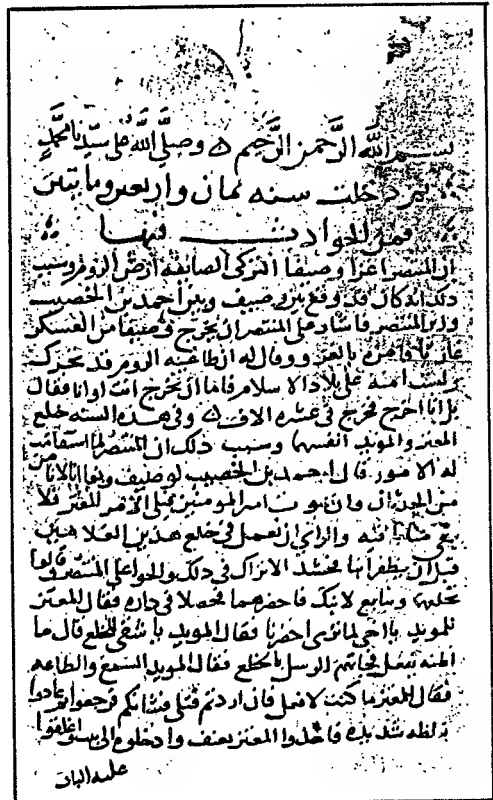 بسم الله الرحمن الرحيم وصلى الله على سيدنا محمد
ثم دخلت سنه ثمان واربعين ومايتين
فمن الحوادث فيها
ان المنتصر اغزا وصيفا التركي الصائفه ارض الروم وسبب
ذلك انه كان قد وقع بين وصيف وبين احمد بن الخصيب
وزير المنتصر فاشار على المنتصر ان يخرج وصيفا من العسكر
غازيا فامره بالغزو وقال له ان طاغيه الروم قد تحرك
ولست امنه على بلاد الاسلام فاما ان تخرج انت او انا فقال
بل انا اخرج فخرج في عشره الاف وفي هذه السنه خلع
المعتز والمويد انفسهما وسبب ذلك ان المنتصر لما استقامت
له الامور قال احمد بن الخصيب لوصيف وبغا انا لا نامن
من الحدثان وان يموت امير المومنين فيلى الامر المعتز فلا
يبقى منا باقيه والراي ان نعمل في خلع هذين الغلامين
قبل ان يظفرا بنا فجد الاتراك في ذلك والحوا على المنتصر وقالوا
نخلعهما ونبايع لابنك فاحضرهما فجعلا في داره فقال المعتز
للمويد يا اخي لم ترى احضرنا فقال المويد يا شقي للخلع قال ما
اظنه يفعل فجاتهم الرسل بالخلع فقال المويد السمع والطاعه
فقال المعتز ما كنت لافعل فان اردتم قتلي فشانكم فرجعوا ثم عادوا
بغلظه شديده فاخذوا المعتز بعنف وادخلوه الى بيت واغلقوا
عليه الباب